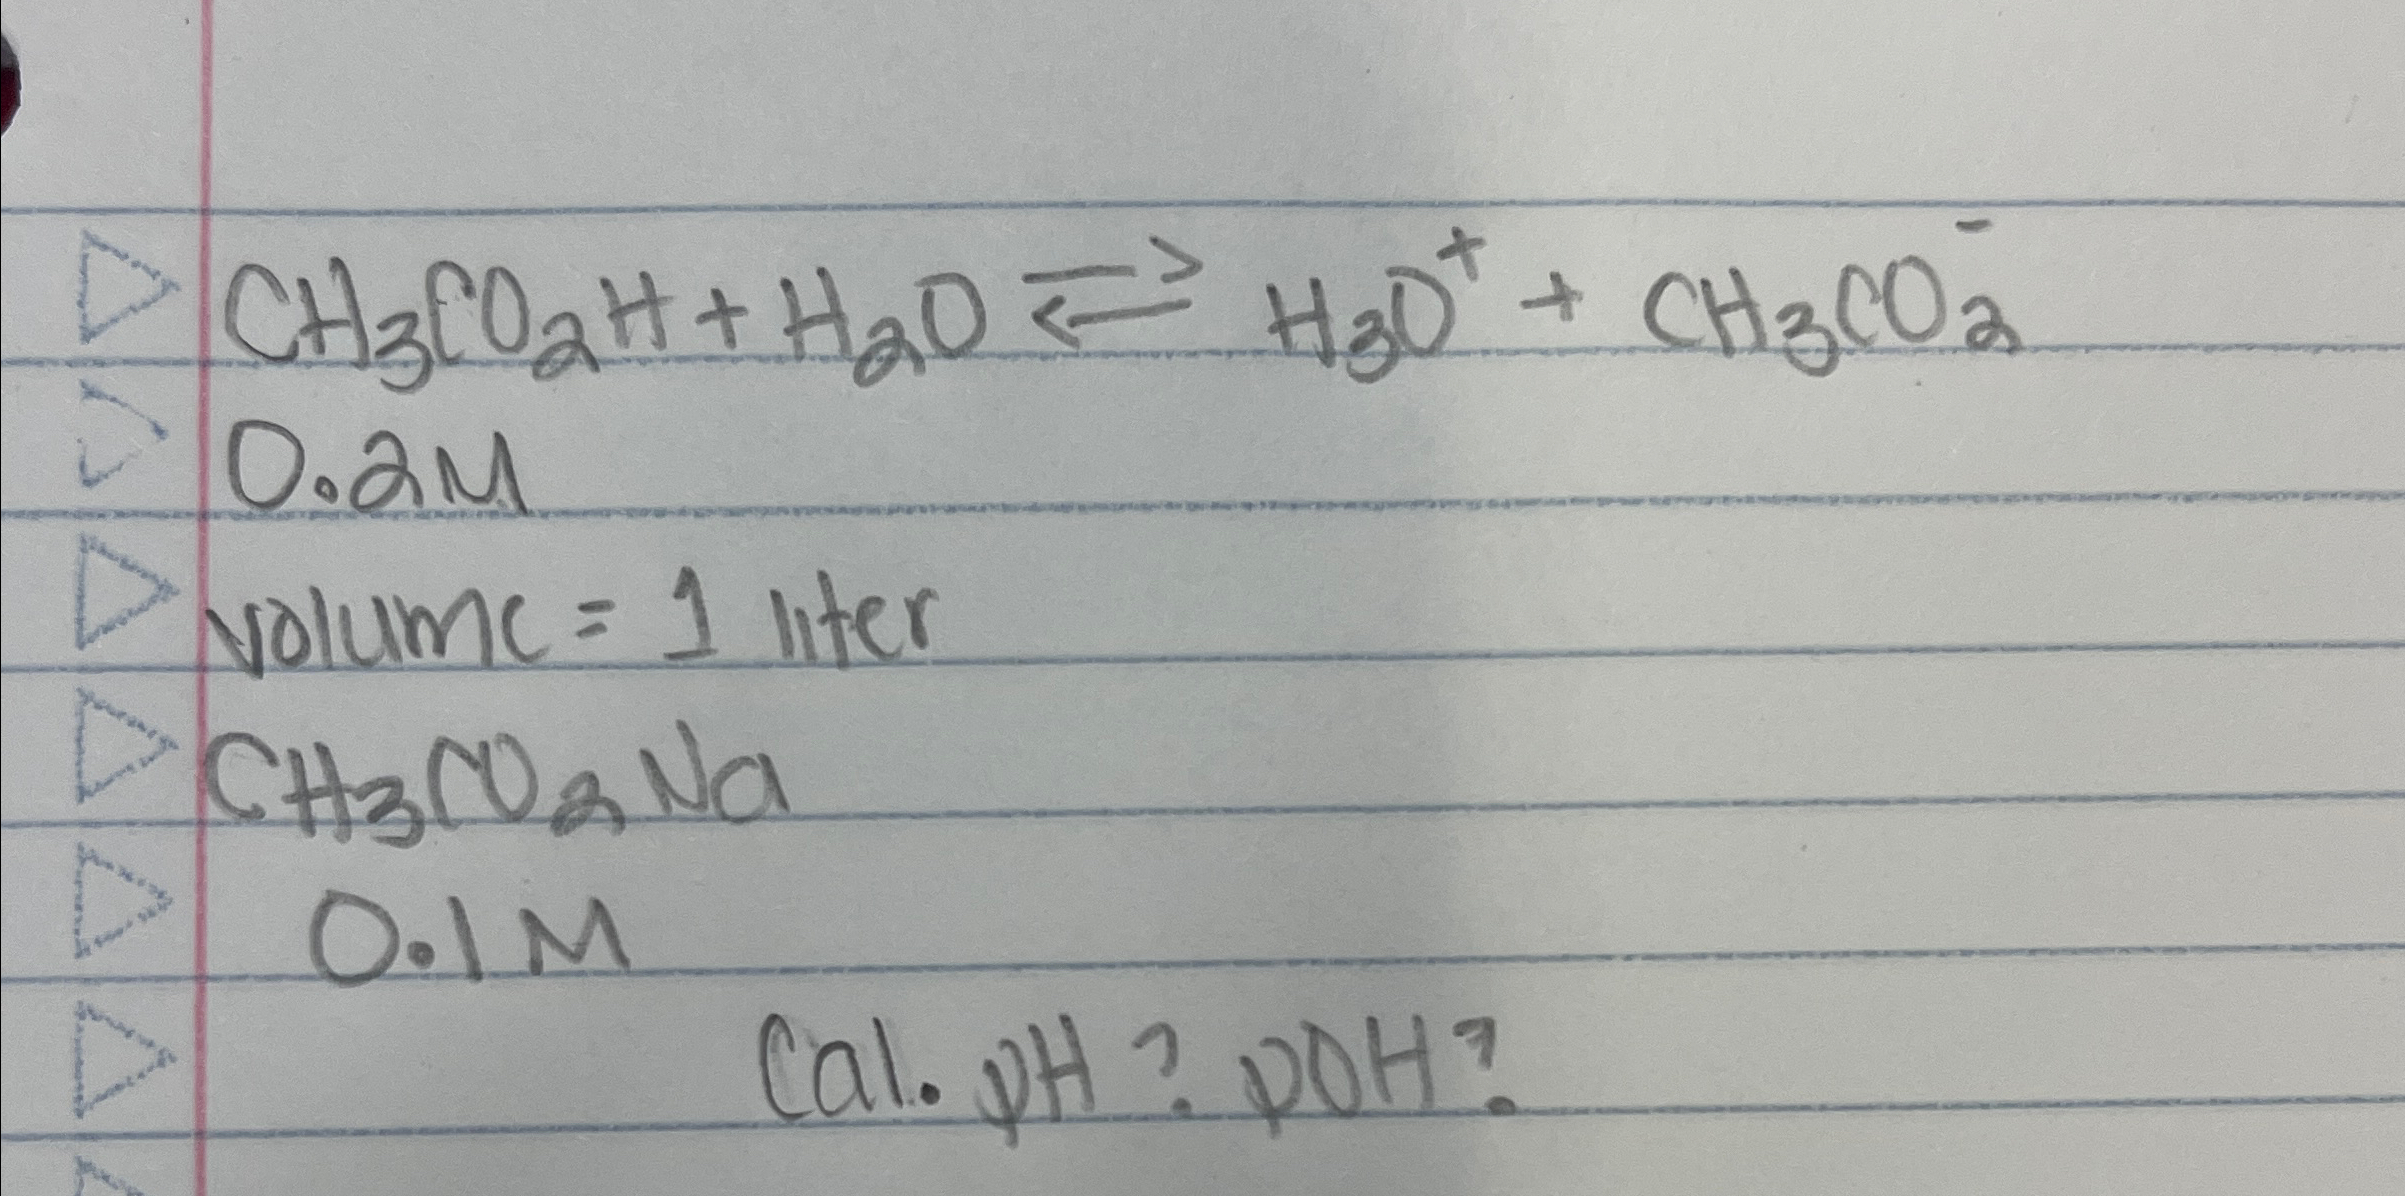 CH₃CO₂H + H₂O ⇌ H₃O⁺ + CH₃CO₂⁻
0.2M
volume = 1 liter
CH₃CO₂Na
0.1M
Cal. pH? pOH?